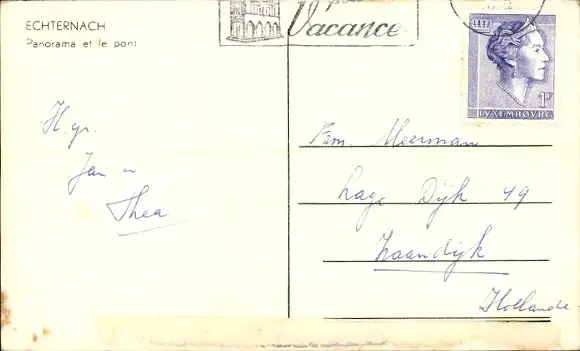 ECHTERNACH
Panorama et le pont
Vacance
1F
LUXEMBOURG
H. gr.
Jan en
Thea
Fam. Meerman
Lage Dijk 49
Zaandijk
Hollande